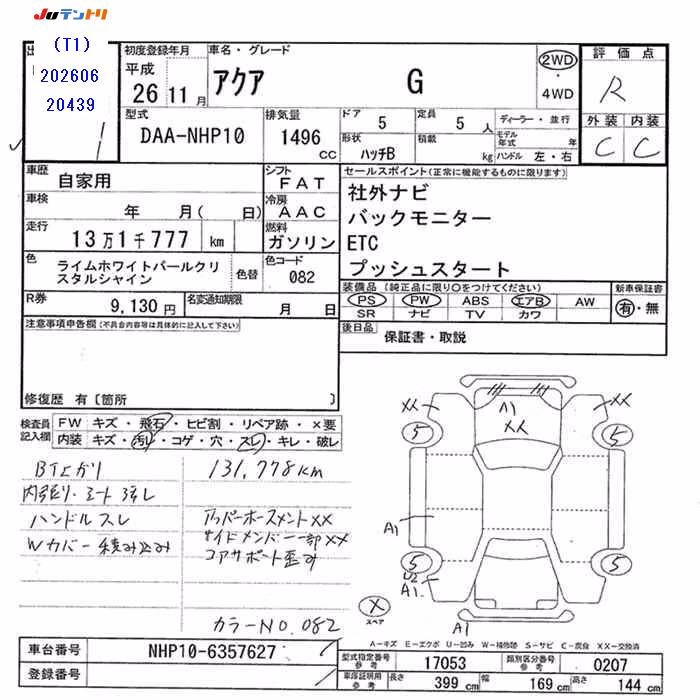 JUテントリ
(T1)
202606
20439
初度登録年月
平成
26 11 月
車名・グレード
アクア G
2WD
・
4WD
評価点
R
外装 内装
C C
型式
DAA-NHP10
排気量
1496 cc
ドア 5
定員 5 人
形状 ハッチB
積載 kg
ディーラー・並行
モデル年式 年
ハンドル 左・右
車歴
自家用
シフト
FAT
車検
年 月( 日)
冷房
AAC
走行
13万1千777 km
燃料
ガソリン
色
ライムホワイトパールクリスタルシャイン
色替
色コード
082
R券
9,130 円
名変通知期限
月 日
セールスポイント(正常に機能するものに限ります)
社外ナビ
バックモニター
ETC
プッシュスタート
装備品(純正品に限り○をつけてください)
PS PW ABS エアB AW
SR ナビ TV カワ
新車保証書
有・無
後日品
保証書・取説
注意事項申告欄(不具合内容等は具体的に記入して下さい)
修復歴 有〔箇所 〕
検査員記入欄
FW キズ・飛石・ヒビ割・リペア跡・×要
内装 キズ・汚れ・コゲ・穴・スレ・キレ・破レ
131,778km
内張り・シート
ハンドルスレ
Wカバー積み込み
アッパーホースメントXX
サイドメンバー一部XX
コアサポート歪み
カラーNO.082
XX
A1
XX
XX
5
5
A1
A1
5
5
U2
A1
X
スペア
A1
A-キズ E-エクボ U-凹み W-補修跡 S-サビ C-腐食 XX-交換済
車台番号
NHP10-6357627
登録番号
型式指定番号 参考
17053
類別区分番号 参考
0207
車庫証明用 参考
長さ 399 cm
幅 169 cm
高さ 144 cm